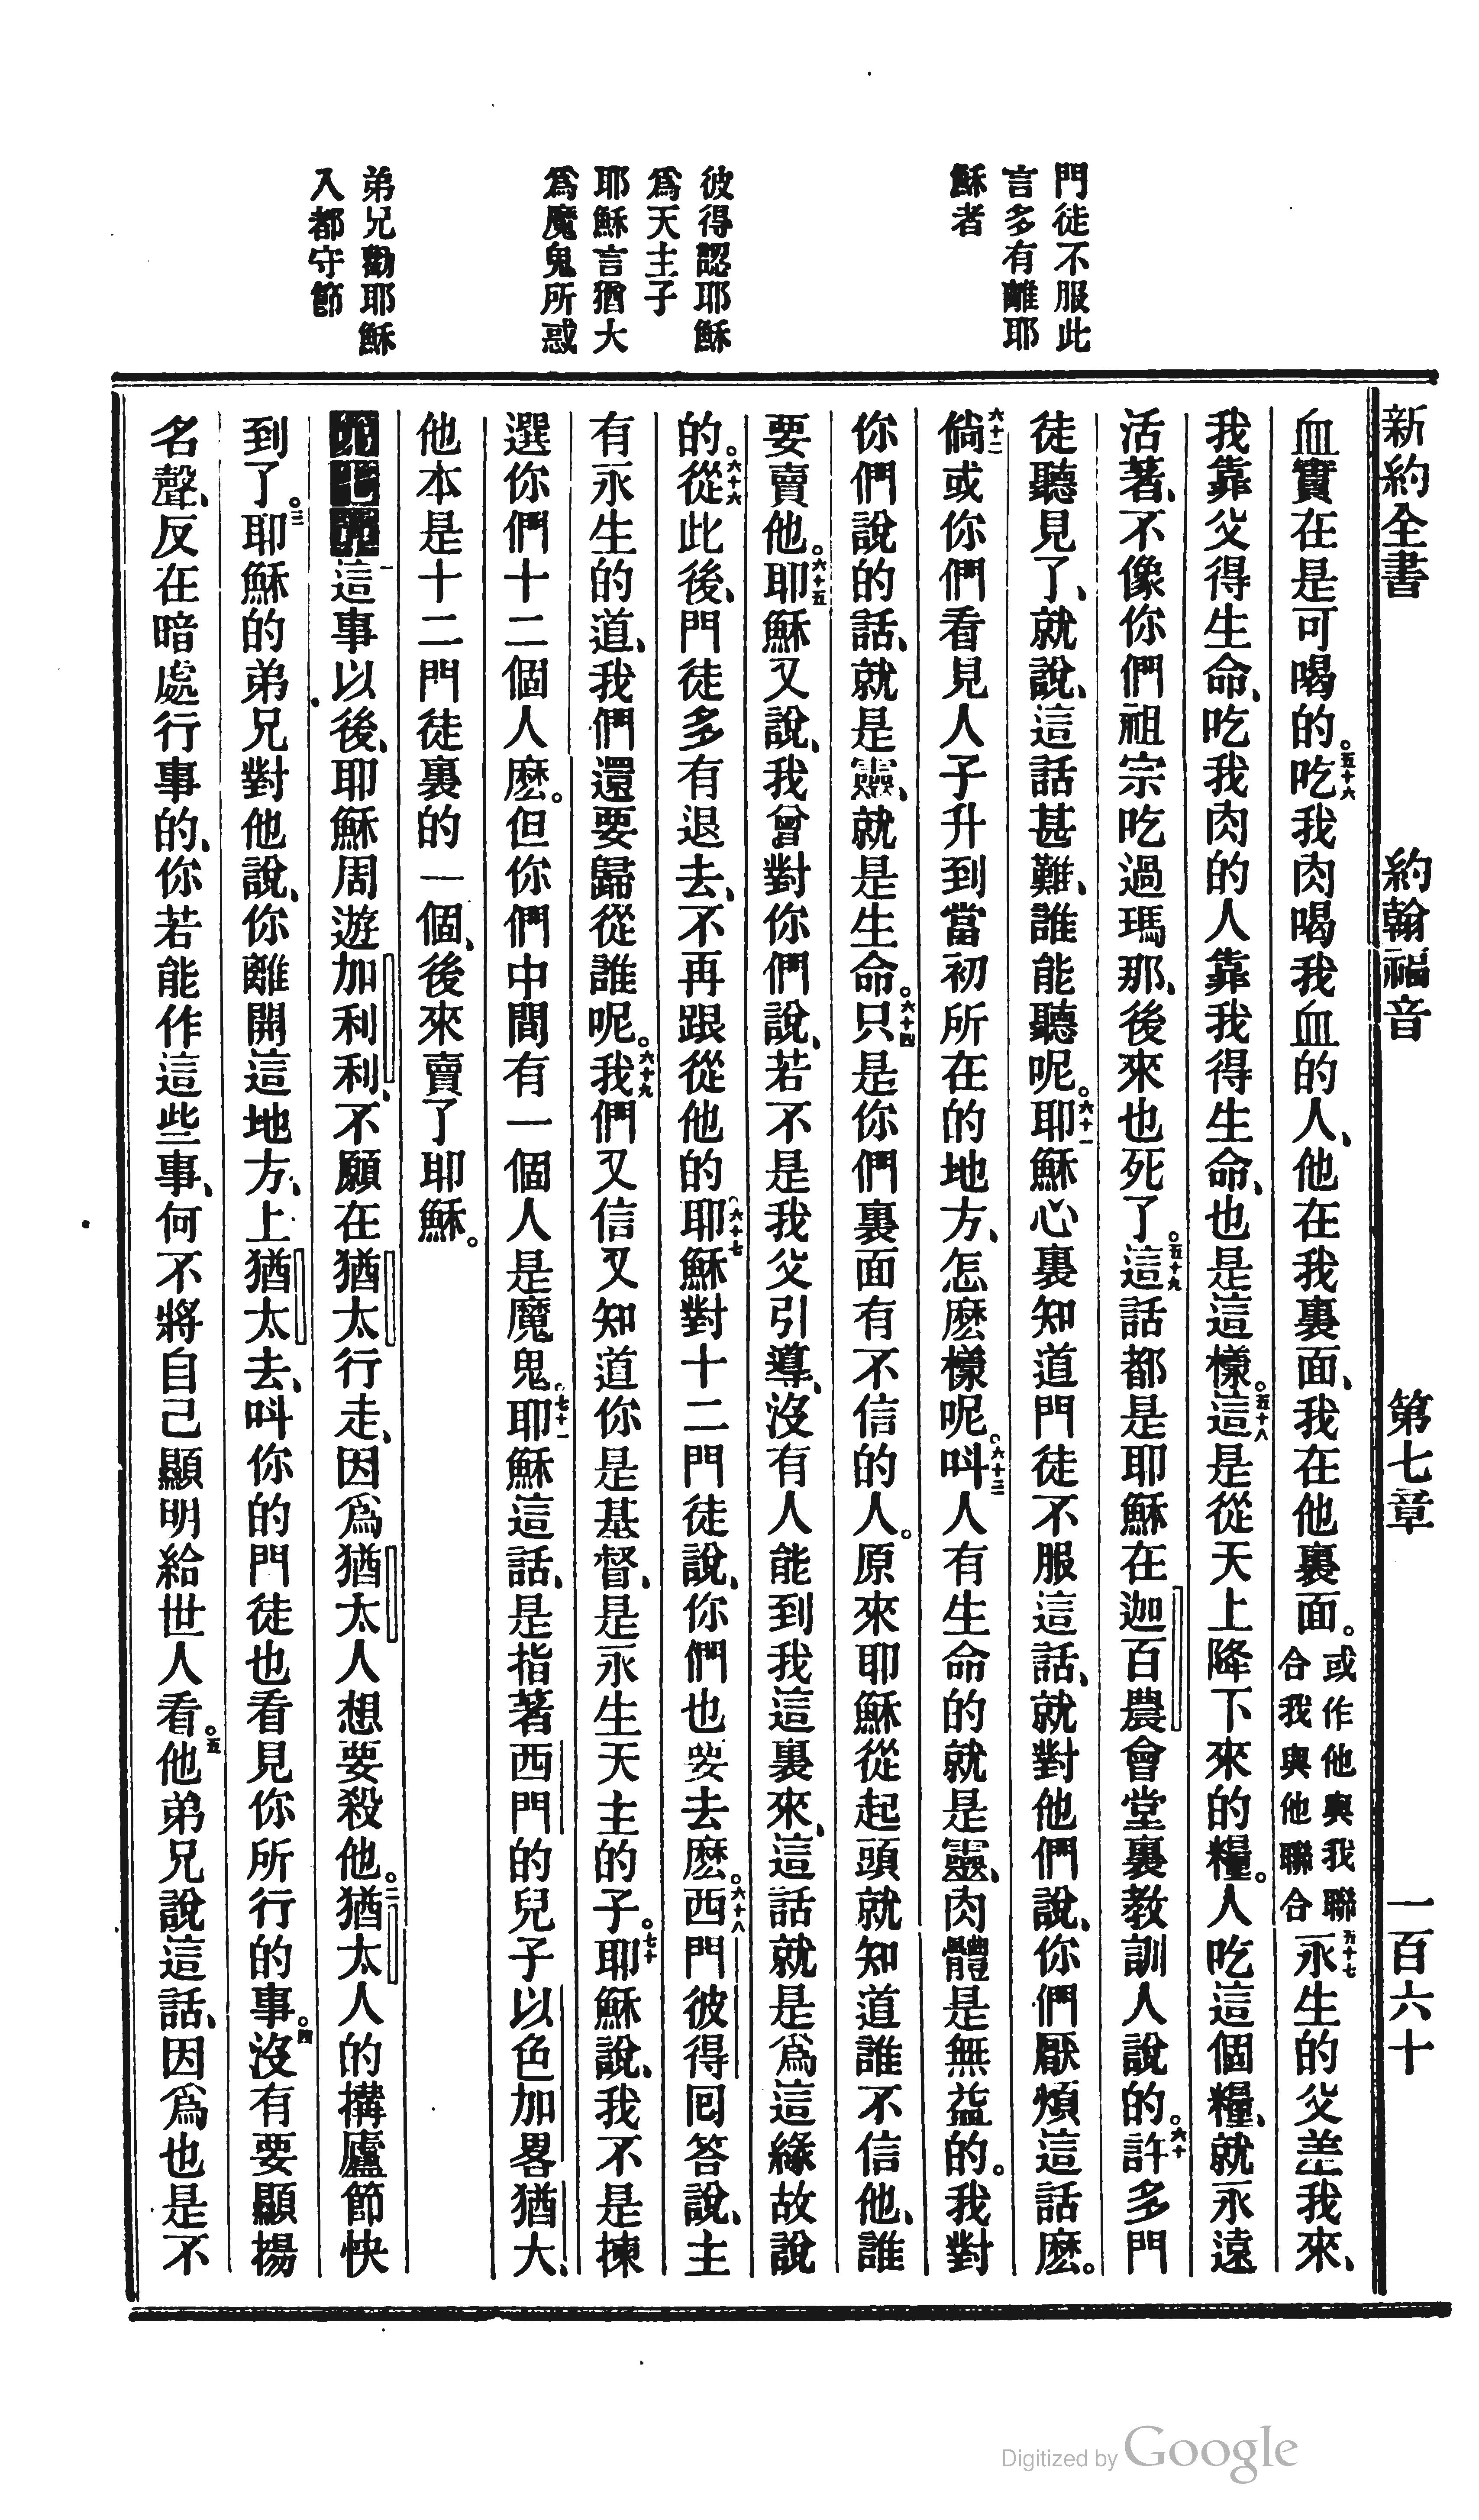 新約全書 約翰福音 第七章 一百六十
門徒不服此
言多有離耶
穌者
彼得認耶穌
爲天主子
耶穌言猶大
爲魔鬼所惑
弟兄勸耶穌
入都守節
血實在是可喝的。五十六吃我肉喝我血的人、他在我裏面、我在他裏面。或作他與我聯合我與他聯合五十七永生的父差我來、
我靠父得生命、吃我肉的人靠我得生命、也是這樣。五十八這是從天上降下來的糧。人吃這個糧、就永遠
活著、不像你們祖宗吃過瑪那、後來也死了。五十九這話都是耶穌在迦百農會堂裏教訓人說的。六十許多門
徒聽見了、就說、這話甚難、誰能聽呢。六十一耶穌心裏知道門徒不服這話、就對他們說、你們厭煩這話麽。
六十二倘或你們看見人子升到當初所在的地方、怎麽樣呢。六十三呌人有生命的就是靈、肉體是無益的。我對
你們說的話、就是靈、就是生命。六十四只是你們裏面有不信的人。原來耶穌從起頭就知道誰不信他、誰
要賣他。六十五耶穌又說、我曾對你們說、若不是我父引導、沒有人能到我這裏來、這話就是爲這緣故說
的。六十六從此後、門徒多有退去、不再跟從他的。六十七耶穌對十二門徒說、你們也要去麽。六十八西門彼得回答說、主
有永生的道、我們還要歸從誰呢。六十九我們又信又知道你是基督、是永生天主的子。七十耶穌說、我不是揀
選你們十二個人麽。但你們中間有一個人是魔鬼。七十一耶穌這話、是指著西門的兒子以色加畧猶大、
他本是十二門徒裏的一個、後來賣了耶穌。
第七章一這事以後、耶穌周遊加利利、不願在猶太行走、因爲猶太人想要殺他。二猶太人的搆廬節快
到了。三耶穌的弟兄對他說、你離開這地方、上猶太去、呌你的門徒也看見你所行的事。四沒有要顯揚
名聲、反在暗處行事的、你若能作這些事、何不將自己顯明給世人看。五他弟兄說這話、因爲也是不
Digitized by Google